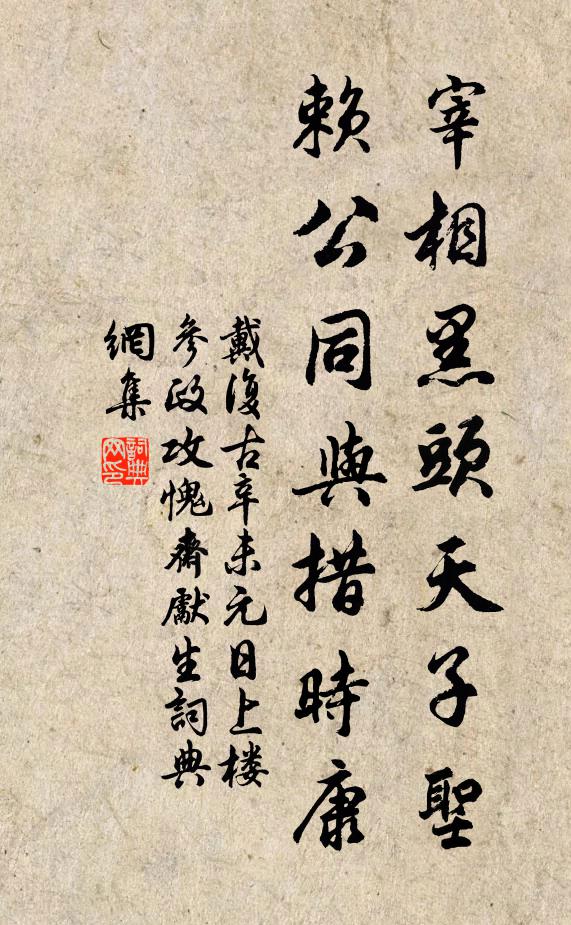 宰相黑頭天子聖
賴公同與措時康
戴復古辛未元日上楼
參政攻愧齋獻生詞典
網集
詞典网印